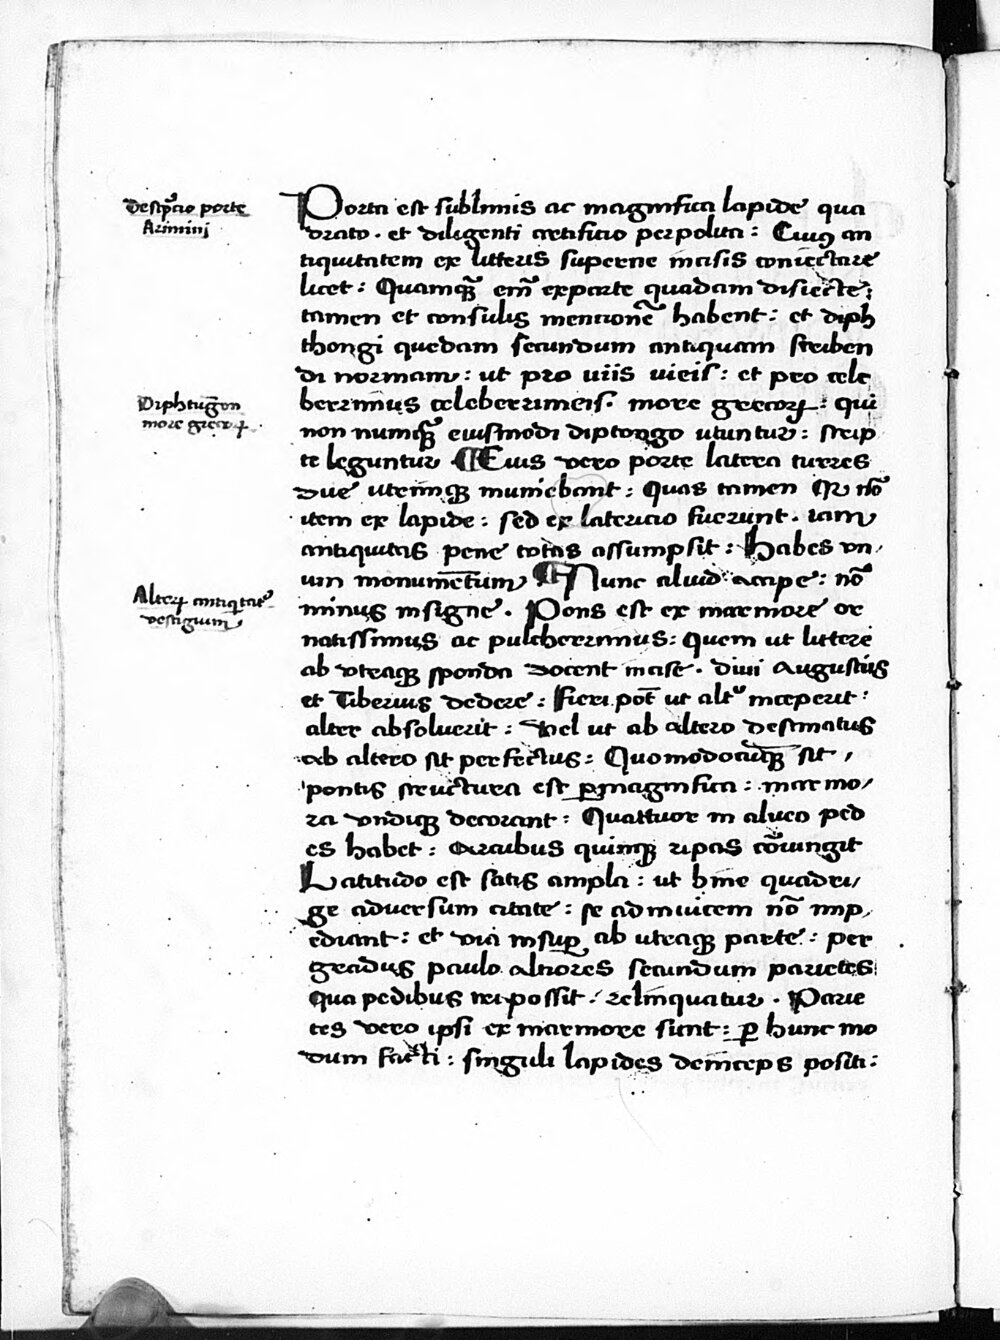 Descp̄tio porte
Arimini
Porta est sublimis ac magnifica lapide qua
drato. et diligenti artificio perpolita: Cuius an
tiquitatem ex litteris superne incisis coniectare
licet: Quamq̃ em̃ ex parte quadam disiecte:
tamen et consulis mentionē habent: et diph
thongi quedam secundum antiquam scriben
di normam: ut pro viis vieis: et pro cele
berrimus celeberrimeis. more grecoꝝ: qui
Diphtūgon
more grecoꝝ
non numq̃ eiusmodi diptongo utuntur: scrip
te leguntur ¶ Eius vero porte latera turres
due utrinqꝫ muniebant: Quas tamen nō
item ex lapide: sed ex latericio fuerunt. iam
antiquitas pene totas assumpsit: Habes un
um monumentum ¶ Nunc aliud accipe: nō
Alteꝝ antiqͥtatꝭ
vestigium
minus insigne. Pons est ex marmore or
natissimus ac pulcherrimus: Quem ut littere
ab utraqꝫ sponda docent incise. divi Augustus
et Tiberius dedere: Fieri pōt ut altͬ inceperit:
alter absoluerit: Vel ut ab altero destinatus
ab altero sit perfectus: Quomodocunqꝫ sit,
pontis structura est ꝑmagnifica: marmo/
ra undiqꝫ decorant: Quattuor in alueo ped
es habet: Arcibus quinqꝫ ripas cōiungit
Latitudo est satis ampla: ut bine quadri/
ge adversum citate: se ad invicem nō imp/
ediant: et via insuꝑ ab utraqꝫ parte: per
gradus paulo altiores secundum parietes
qua pedibus iri possit: relinquatur. Parie
tes vero ipsi ex marmore sunt: ꝑ hunc mo
dum facti: singuli lapides deinceps positi: